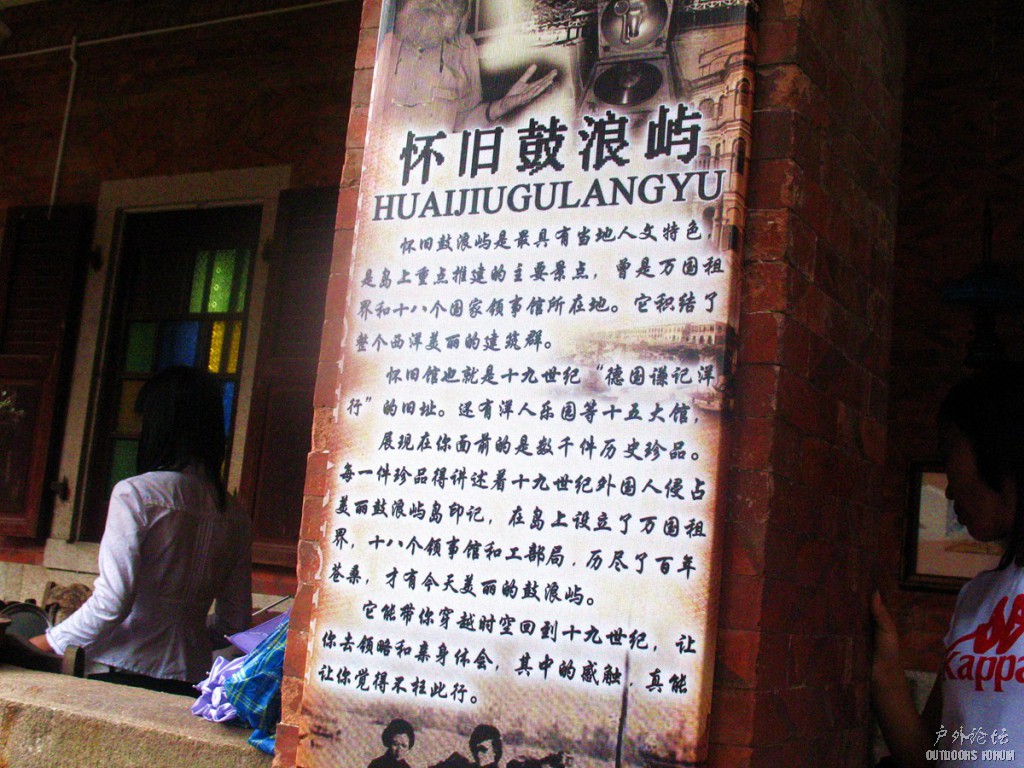 怀旧鼓浪屿
HUAIJIUGULANGYU
怀旧鼓浪屿是最具有当地人文特色，
是岛上重点推建的主要景点，曾是万国租
界和十八个国家领事馆所在地。它积结了
整个西洋美丽的建筑群。
怀旧馆也就是十九世纪“德国谦记洋
行”的旧址。还有洋人乐园等十五大馆，
展现在你面前的是数千件历史珍品。
每一件珍品得讲述着十九世纪外国人侵占
美丽鼓浪屿岛印记，在岛上设立了万国租
界，十八个领事馆和工部局，历尽了百年
苍桑，才有今天美丽的鼓浪屿。
它能带你穿越时空回到十九世纪，让
你去领略和亲身体会，其中的感触，真能
让你觉得不枉此行。
Kappa
户外论坛
OUTDOORS FORUM